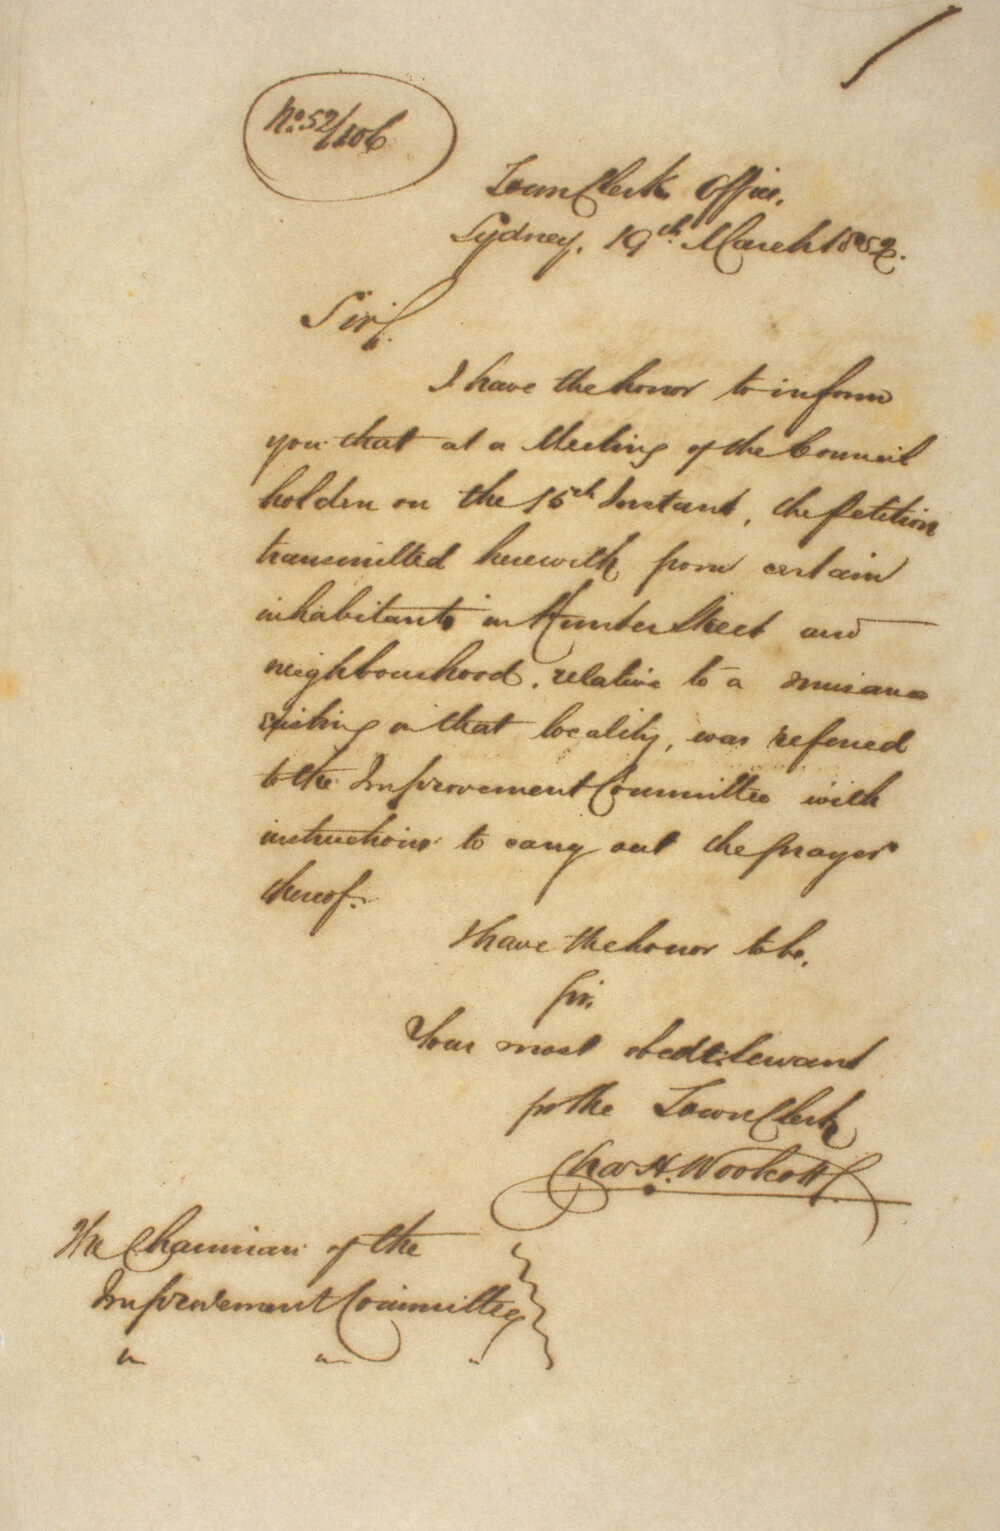 No. 52/106
Town Clerk Office,
Sydney, 19th March 1852.
Sir,
I have the honor to inform
you that at a Meeting of the Council
holden on the 15th Instant, the petition
transmitted herewith from certain
inhabitants in Hunter Street and
neighbourhood, relative to a nuisance
existing in that locality, was referred
to the Improvement Committee with
instructions to carry out the prayer
thereof.
I have the honor to be,
Sir,
Your most obedt. Servant
for the Town Clerk
Chas H. Woolcott
The Chairman of the
Improvement Committee
" " "